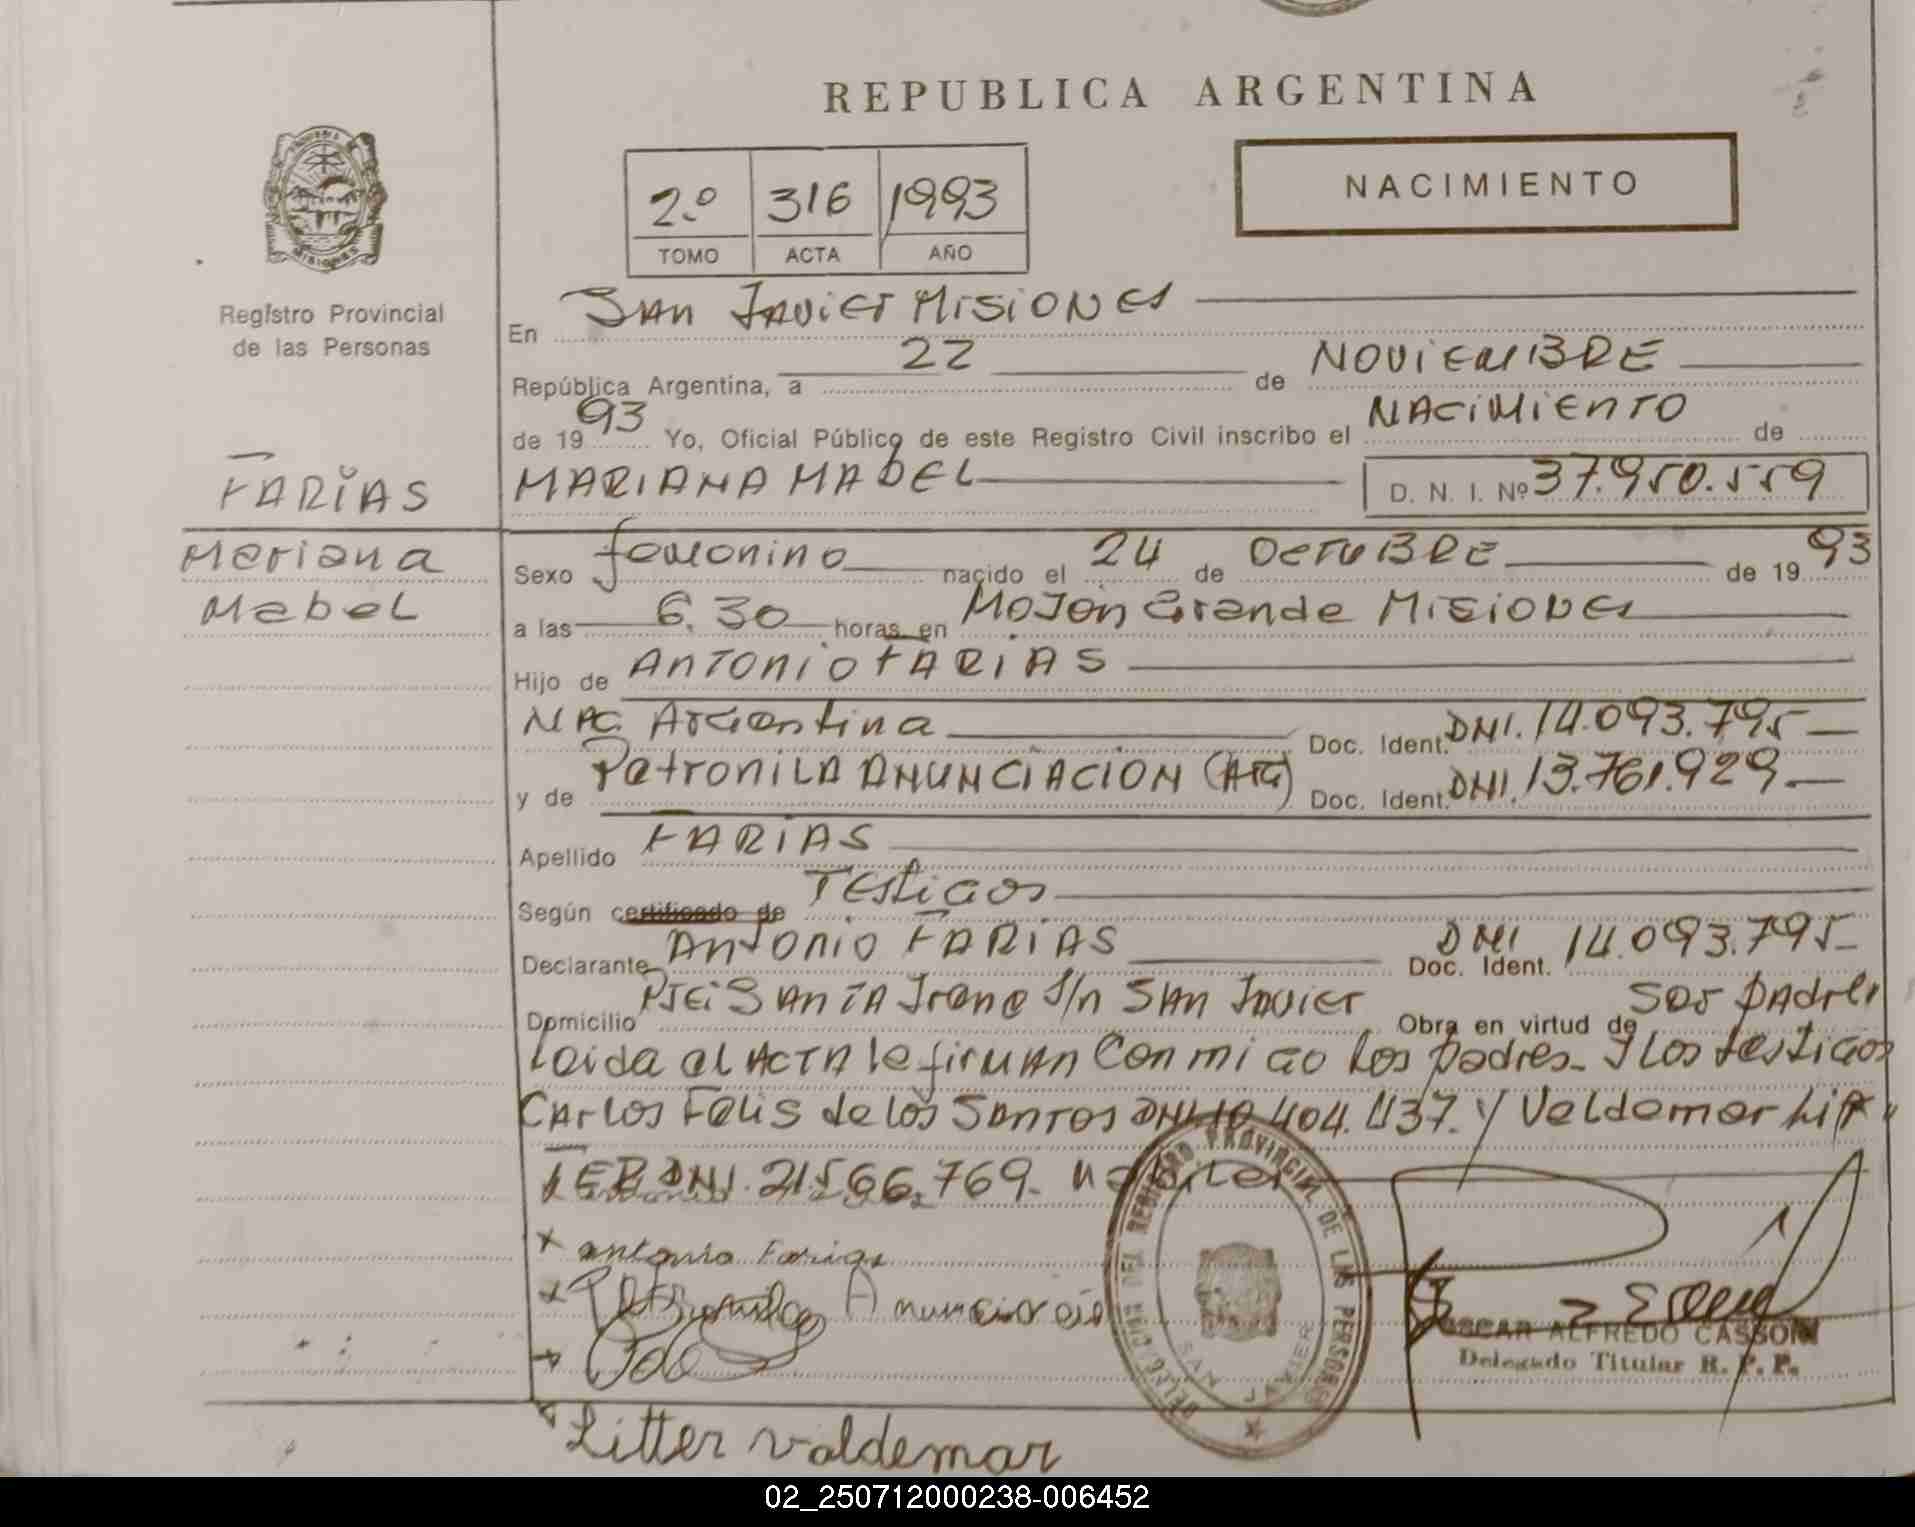 REPUBLICA ARGENTINA
NACIMIENTO
2º 316 1993
TOMO ACTA AÑO
MISIONES
Registro Provincial
de las Personas
FARIAS
Mariana
Mabel
En SAN JAVIER MISIONES
República Argentina, a 22 de NOVIEMBRE
de 1993 Yo, Oficial Público de este Registro Civil inscribo el NACIMIENTO de
MARIANA MABEL D. N. I. Nº 37.950.559
Sexo femenino nacido el 24 de OCTUBRE de 1993
a las 6.30 horas en MOJON Grande MISIONES
Hijo de ANTONIO FARIAS
NAC. Argentina Doc. Ident. DNI. 14.093.795
y de PetroniLA ANUNCIACION (ARG) Doc. Ident. DNI. 13.761.929
Apellido FARIAS
Según certificado de TEstigos
Declarante ANTONIO FARIAS Doc. Ident. DNI 14.093.795
Domicilio SANTA Irene S/n SAN Javier Obra en virtud de ser padres
Leida el ACTA la firMAN Conmigo Los padres. Y Los testigos
CArLos FELIS de Los SANTOS DNI 404.437. y Valdemar Lit
TER DNI. 21.566.769.
x antonio Farias
x Petronila Anunciacio
Litter valdemar
DELEGACION DEL REGISTRO PROVINCIAL DE LAS PERSONAS
SAN JAVIER
OSCAR ALFREDO CASSONI
Delegado Titular R. P. P.
02_250712000238-006452